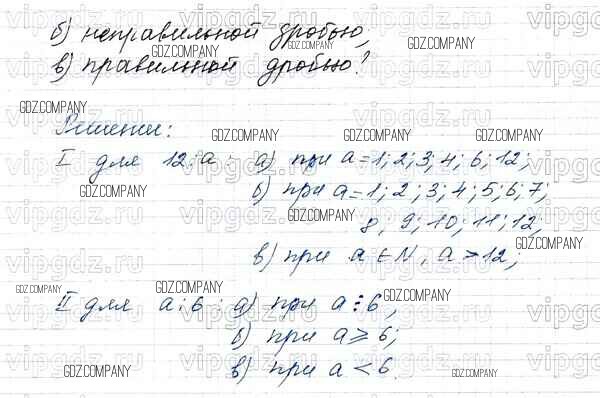 б) неправильной дробью,
в) правильной дробью?
Решение:
I для 12:а : а) при а=1; 2; 3; 4; 6; 12;
б) при а=1; 2; 3; 4; 5; 6; 7;
8, 9; 10; 11; 12;
в) при а ∈ N, а > 12;
II для а:6 : а) при а ⋮ 6,
б) при а ≥ 6;
в) при а < 6.